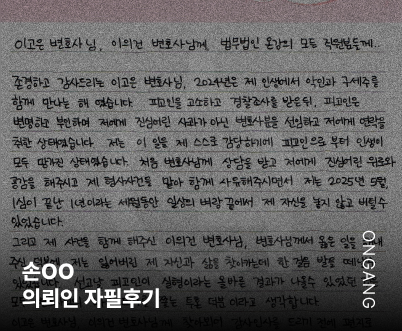 이고은 변호사님, 이의건 변호사님께, 법무법인 온강의 모든 직원분들께..
존경하고 감사드리는 이고은 변호사님, 2024년은 제 인생에서 악인과 구세주를
함께 만나는 해 였습니다. 피고인을 고소하고 경찰조사를 받은뒤, 피고인은
변명하고 부인하며 저에게 진심어린 사과가 아닌 변호사분을 선임하고 저에게 연락을
취한 상태였습니다. 저는 이 일을 제 스스로 감당하기에 피고인으로 부터 인생이
모두 망가진 상태였습니다. 처음 변호사님께 상담을 받고 저에게 진심어린 위로와
공감을 해주시고 제 형사사건을 맡아 함께 싸워해주시면서 저는 2025년 5월,
1심이 끝난 1년이라는 세월동안 일상의 벼랑 끝에서 제 자신을 놓지 않고 버틸수
있었습니다.
그리고 제 사건을 함께 해주신 이의건 변호사님, 변호사님께서 옳은 일을
주신 덕분에 저는 잃어버린 제 자신과 삶을 찾아가는데 한 걸음 발을
선고날 피고인이 실형이라는 올바른 결과가 나올수 있었던
덕분 이라고 생각합니다
손OO
의뢰인 자필후기
ONGANG